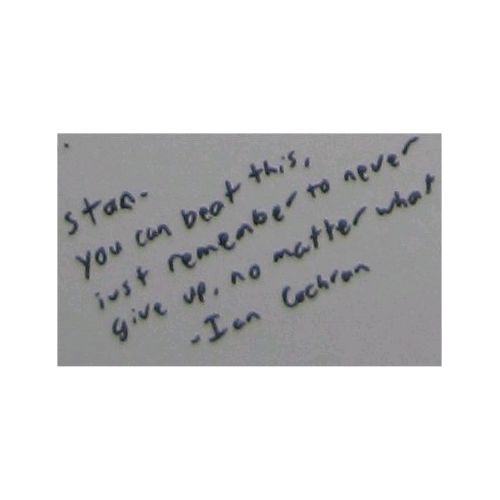 Stan-
You can beat this,
just remember to never
give up, no matter what
-Ian Cochran